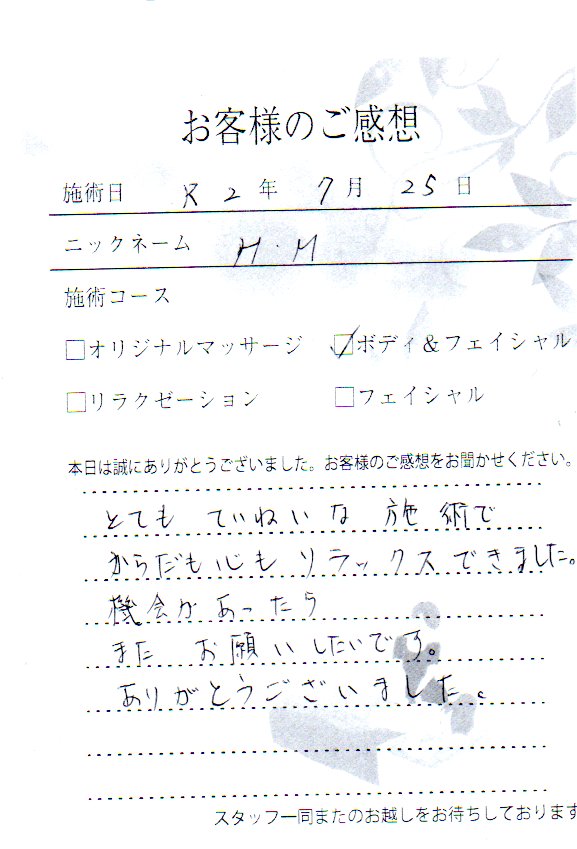 お客様のご感想
施術日 R2年 7月 25日
ニックネーム H.M
施術コース
□オリジナルマッサージ ☑ボディ&フェイシャル
□リラクゼーション □フェイシャル
本日は誠にありがとうございました。お客様のご感想をお聞かせください。
とても ていねいな 施術で
からだも心も リラックスできました。
機会があったら
また お願いしたいです。
ありがとうございました。
スタッフ一同またのお越しをお待ちしております